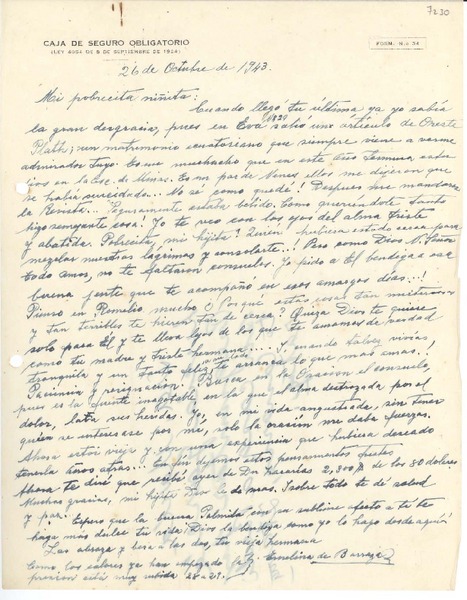 7230
CAJA DE SEGURO OBLIGATORIO
(LEY 4054 DE 8 DE SEPTIEMBRE DE 1924)
FORM. N.o 34
26 de Octubre de 1943.
Mi pobrecita niñita:
Cuando llegó tu última ya yo sabía
la gran desgracia, pues en Eva salió un artículo de Oreste
Plath; un matrimonio ecuatoriano que siempre viene a verme
admirador tuyo. Es un muchacho que en este año termina estu
dios en la Esc. de Minas. Es un par de buenos ellos me dijeron que
se había suicidado... No sé como quedé! Después me mandaron
la Revista... Seguramente estaba bebido. Como queriéndote tanto
hizo semejante cosa. Yo te veo con los ojos del alma triste
y abatida. Pobrecita, mi hijita! Quién hubiera estado cerca para
mezclar nuestras lágrimas y consolarte...! Pero como Dios N. Señor
es todo amor, no te faltaron consuelos. Yo pido a El bendiga a esa
buena gente que te acompañó en esos amargos días...!
Pienso en Romelio mucho ¿Porqué estas cosas tan misteriosas
y tan terribles te hieren tan de cerca? Quizá Dios te quiere
solo para El y te lleva lejos de los que te amamos de verdad
como tu madre y triste hermana... Y cuando tal vez vivías
tranquila y un tanto feliz te arranca lo que más amas.
Paciencia y resignación. Busca en la Oración el consuelo,
pues es la fuente inagotable, en la que el alma destrozada por el
dolor, lava sus heridas. Yo, en mi vida angustiada, sin tener
quién se interesase por mí, solo la oración me daba fuerzas.
Ahora estoy vieja y con una experiencia que hubiera deseado
tenerla años atrás... En fin dejemos estos pensamientos tristes
Ahora te diré que recibí ayer de Don 2,500 $ de los 80 dólares
Muchas gracias, mi hijita Dios te dé más. Y sobre todo te dé salud
y paz. Espero que la buena Palmita con su sublime afecto a ti te
haga más dulce tu vida! Dios la bendiga como yo lo hago desde aquí!
Las abraza y besa a las dos, tu vieja hermana
Emelina de Barraza
Como los valores ya han empezado
está muy subida 28 a 29.